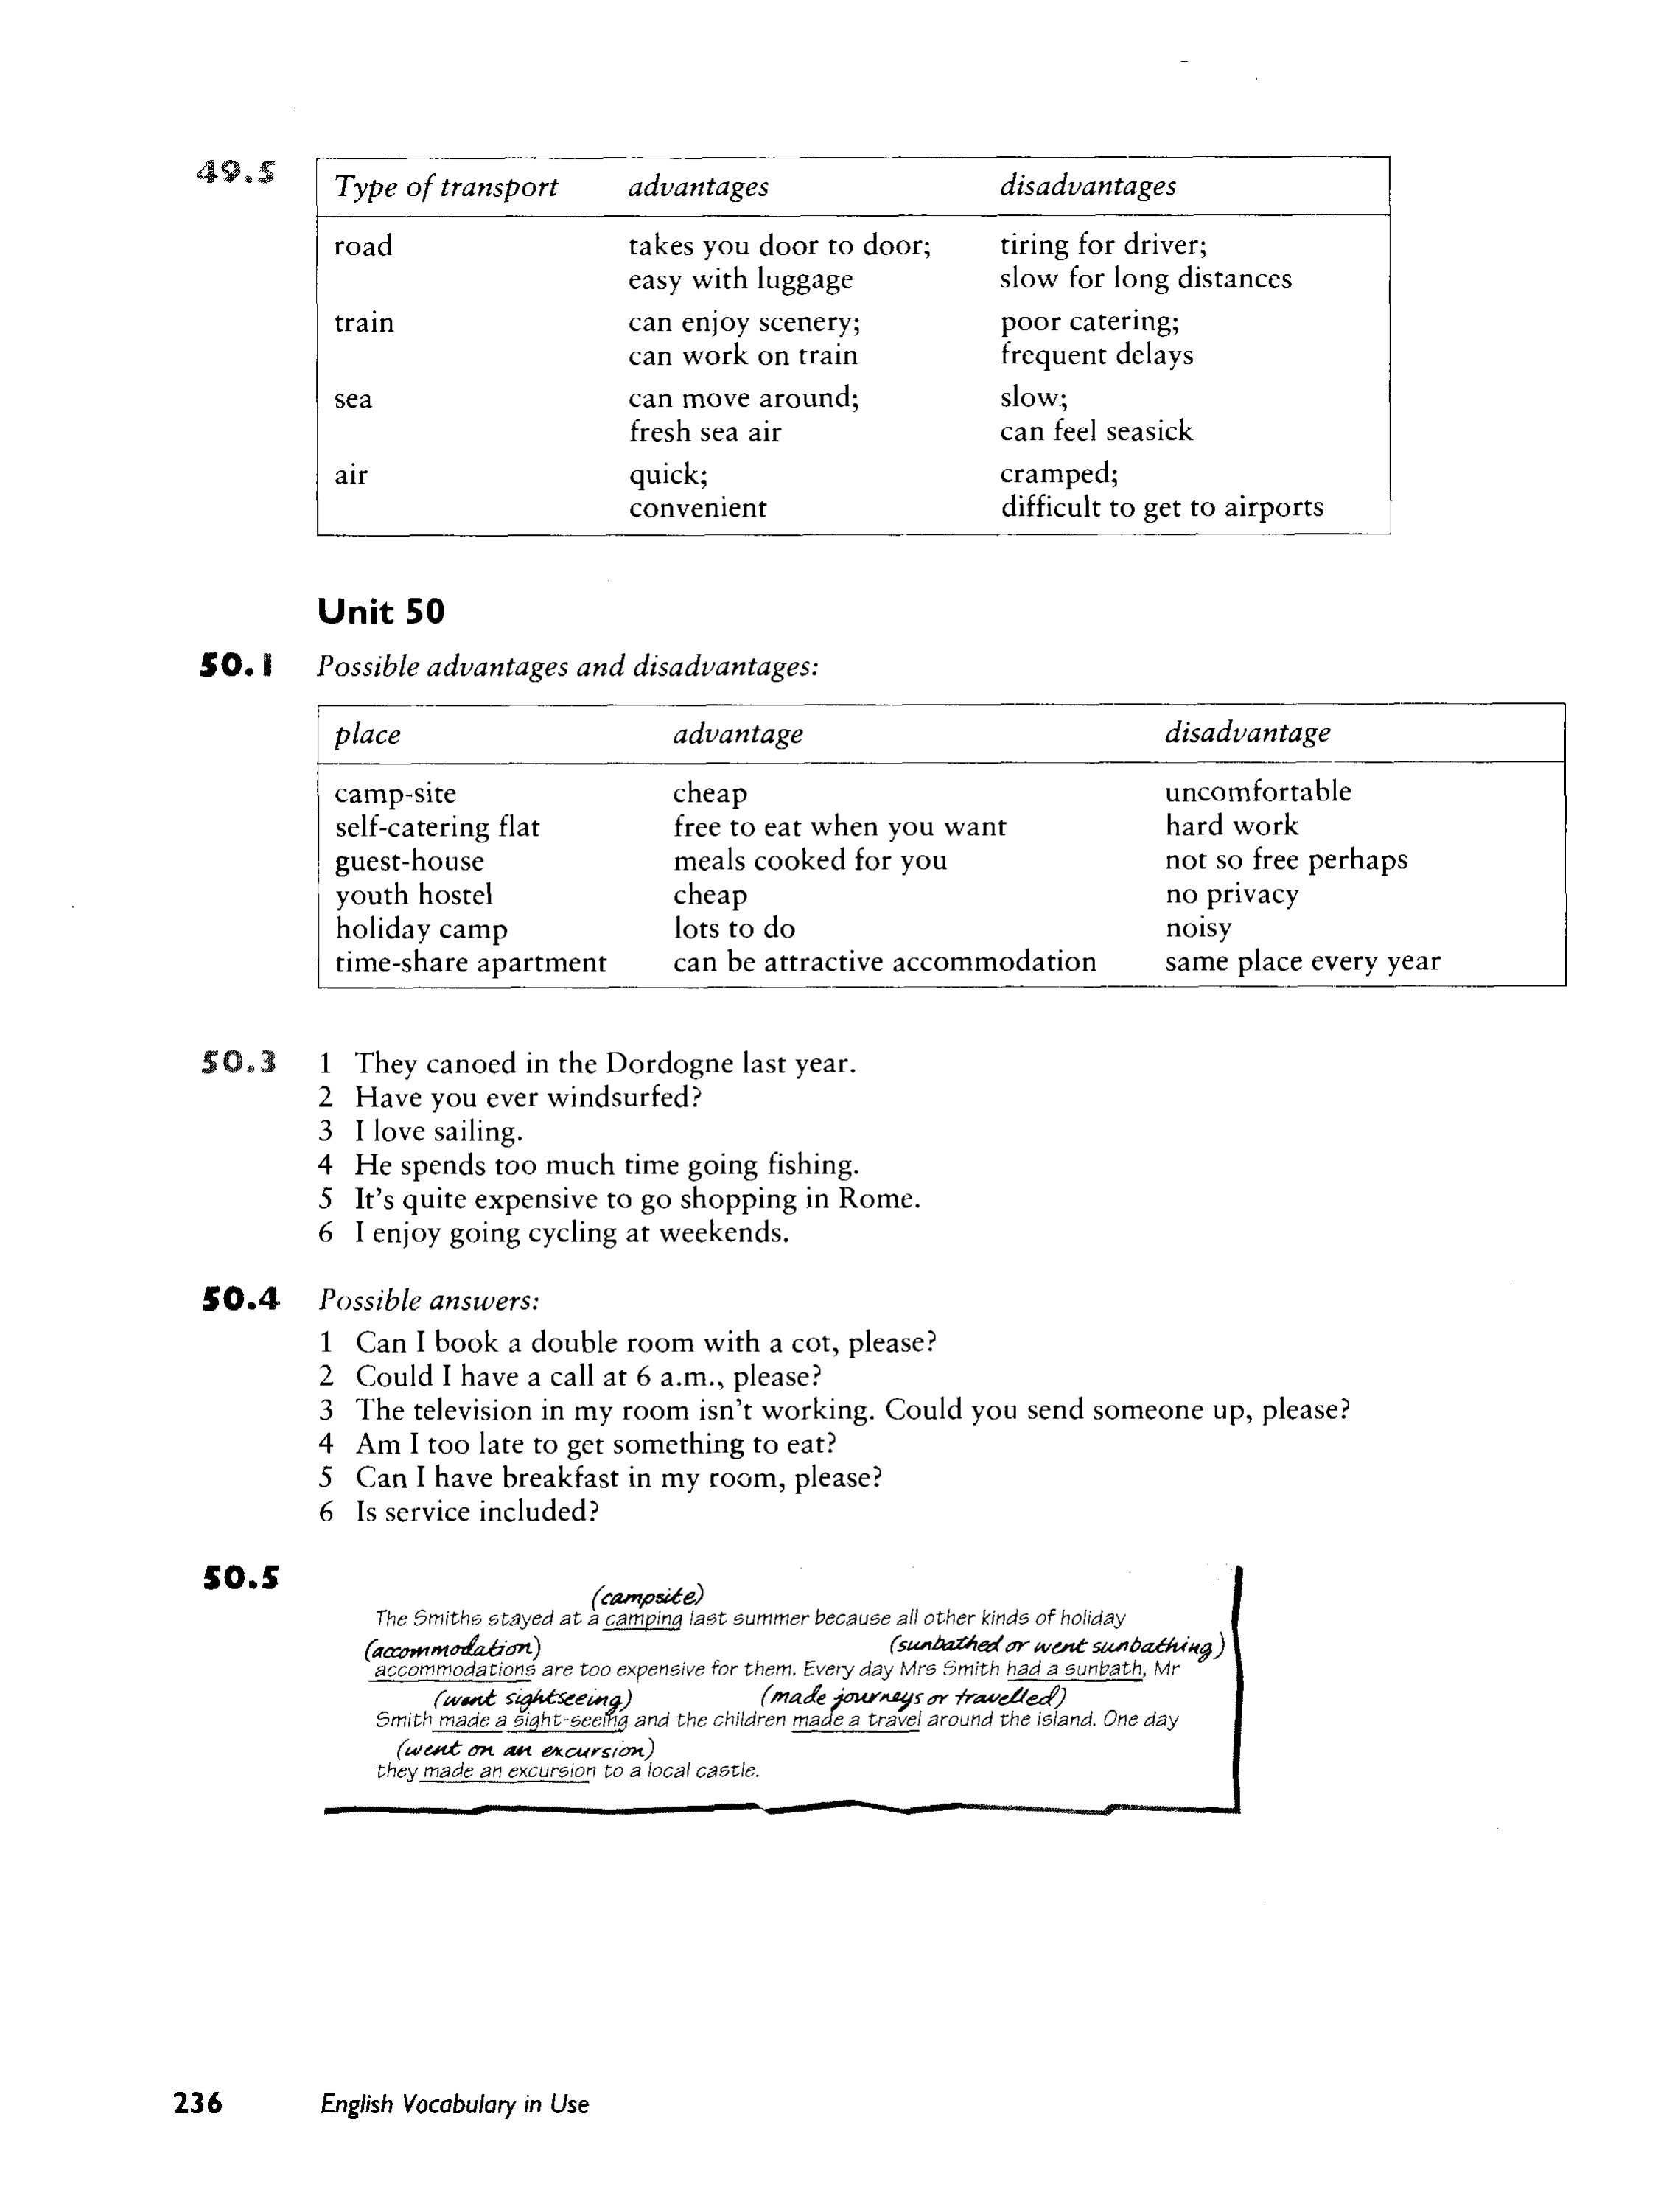 49.5
Type of transport advantages disadvantages
road takes you door to door; tiring for driver;
easy with luggage slow for long distances
train can enjoy scenery; poor catering;
can work on train frequent delays
sea can move around; slow;
fresh sea air can feel seasick
air quick; cramped;
convenient difficult to get to airports
Unit 50
50.1 Possible advantages and disadvantages:
place advantage disadvantage
camp-site cheap uncomfortable
self-catering flat free to eat when you want hard work
guest-house meals cooked for you not so free perhaps
youth hostel cheap no privacy
holiday camp lots to do noisy
time-share apartment can be attractive accommodation same place every year
50.3 1 They canoed in the Dordogne last year.
2 Have you ever windsurfed?
3 I love sailing.
4 He spends too much time going fishing.
5 It's quite expensive to go shopping in Rome.
6 I enjoy going cycling at weekends.
50.4 Possible answers:
1 Can I book a double room with a cot, please?
2 Could I have a call at 6 a.m., please?
3 The television in my room isn't working. Could you send someone up, please?
4 Am I too late to get something to eat?
5 Can I have breakfast in my room, please?
6 Is service included?
50.5
(campsite)
The Smiths stayed at a camping last summer because all other kinds of holiday
(accommodation) (sunbathed or went sunbathing)
accommodations are too expensive for them. Every day Mrs Smith had a sunbath, Mr
(went sightseeing) (made journeys or travelled)
Smith made a sight-seeing and the children made a travel around the island. One day
(went on an excursion)
they made an excursion to a local castle.
236 English Vocabulary in Use